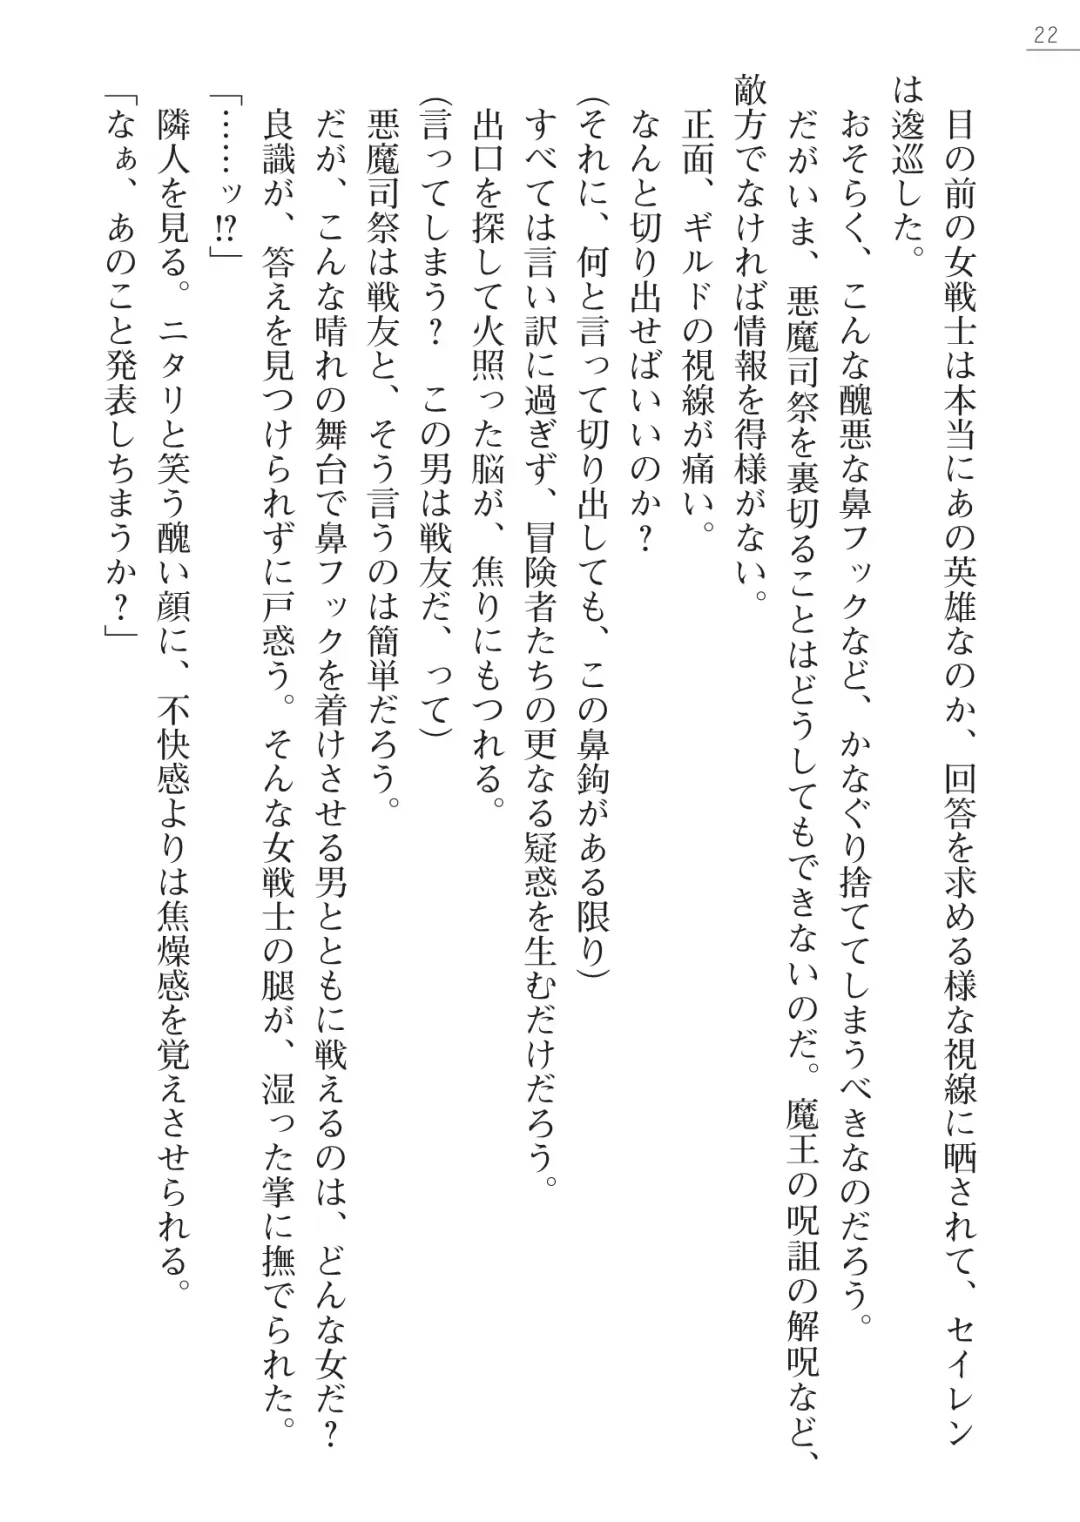 22
目の前の女戦士は本当にあの英雄なのか、回答を求める様な視線に晒されて、セイレン
は逡巡した。
おそらく、こんな醜悪な鼻フックなど、かなぐり捨ててしまうべきなのだろう。
だがいま、悪魔司祭を裏切ることはどうしてもできないのだ。魔王の呪詛の解呪など、
敵方でなければ情報を得様がない。
正面、ギルドの視線が痛い。
なんと切り出せばいいのか？
(それに、何と言って切り出しても、この鼻鉤がある限り)
すべては言い訳に過ぎず、冒険者たちの更なる疑惑を生むだけだろう。
出口を探して火照った脳が、焦りにもつれる。
(言ってしまう？　この男は戦友だ、って)
悪魔司祭は戦友と、そう言うのは簡単だろう。
だが、こんな晴れの舞台で鼻フックを着けさせる男とともに戦えるのは、どんな女だ？
良識が、答えを見つけられずに戸惑う。そんな女戦士の腿が、湿った掌に撫でられた。
「……ッ!?」
隣人を見る。ニタリと笑う醜い顔に、不快感よりは焦燥感を覚えさせられる。
「なぁ、あのこと発表しちまうか？」